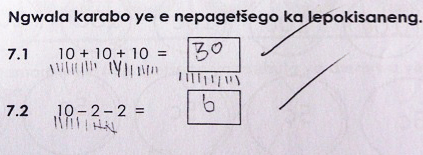 Ngwala karabo ye e nepagetšego ka lepokisaneng.
7.1 10 + 10 + 10 = 30
7.2 10 – 2 – 2 = 6